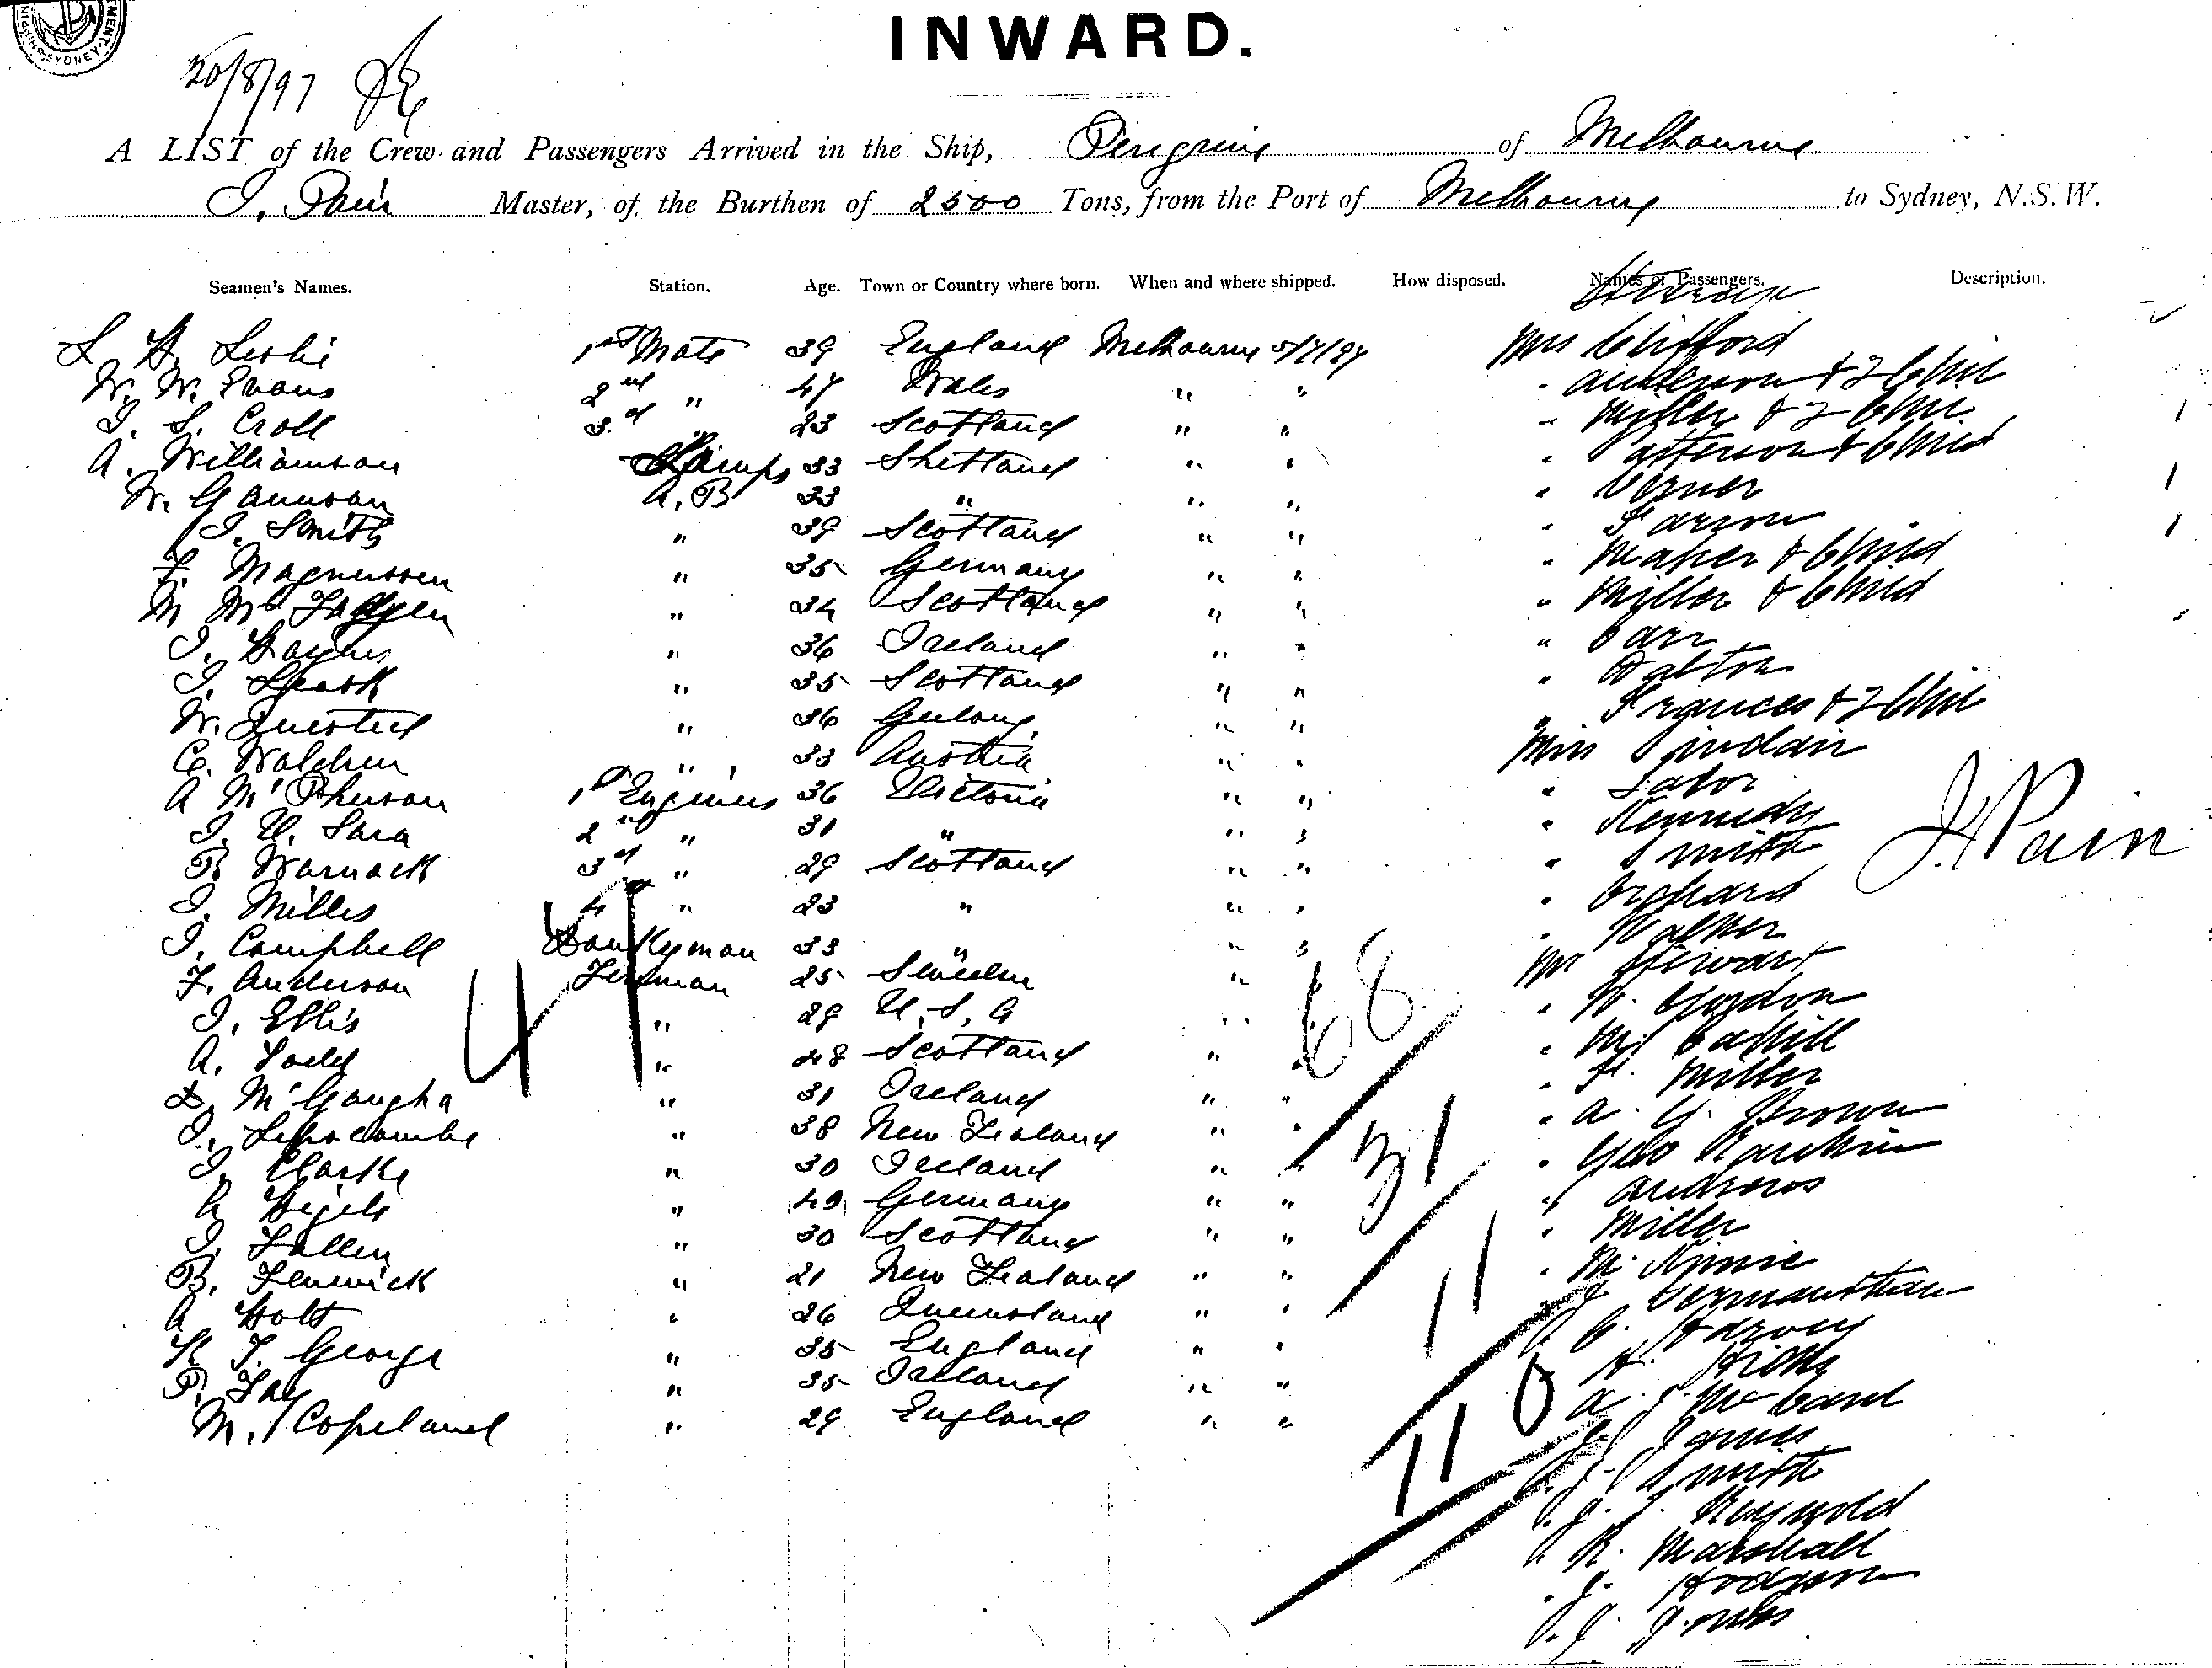 INWARD.
20/8/97
A LIST of the Crew and Passengers Arrived in the Ship, Peregrine of Melbourne
J. Pain Master, of the Burthen of 2500 Tons, from the Port of Melbourne to Sydney, N.S.W.
Seamen's Names. Station. Age. Town or Country where born. When and where shipped. How disposed. Names of Passengers. Description.
Steerage
L. H. Leslie 1st Mate 39 England Melbourne 5/7/97 Mrs Clifford
W. W. Evans 2nd " 47 Wales " " " Anderson & 2 Chil
J. S. Croll 3rd " 23 Scotland " " " Miller & 2 Chil
A. Williamson Lamps 33 Shetland " " " Patterson & Child
W. Gaunson A.B 33 " " " " Verner
J. Smith " 39 Scotland " " " Farson
Magnussen " 35 Germany " " " Maher & Child
M McFadyen " 34 Scotland " " " Miller & Child
J. Haynes " 36 Ireland " " " Carr
J. Leask " 35 Scotland " " " Dalton
W. Quested " 36 Geelong " " " Frances & 2 Chil
C. Walchen " 33 Austria " " Miss Sinclair
A McPherson 1st Engineer 36 Victoria " " "
J. U. Sara 2nd " 31 " " " " Kennedy
R Warnack 3rd " 29 Scotland " " " Smith
J. Pain
J. Milles 4 " 23 " " " " Orchard
J. Campbell Donkeyman 33 " " " " Walker
F. Anderson Fireman 25 Sweden " " Mr Stewart
J. Ellis " 29 U.S.A " " " W. Croydon
A. Todd " 48 Scotland " " " M. Cahill
D. McGaugha " 31 Ireland " " " H. Miller
J. " 38 New Zealand " " " A. G. Brown
J. Clarke " 30 Ireland " " " Geo Rankin
A " 49 Germany " " " Andrews
J. Fallen " 30 Scotland " " " Miller
B. Fenwick " 21 New Zealand " " "
A Holt " 26 Queensland " " "
H J. George " 35 England " " " C. Harvey
P. Fay " 35 Ireland " " " H. Hicks
M. Copeland " 29 England " " " A. J. McCard
" J. James
" J. Smith
" J. J.
" R. Marshall
" J. Hodgson
" J. Jones
41
68
31
11
110